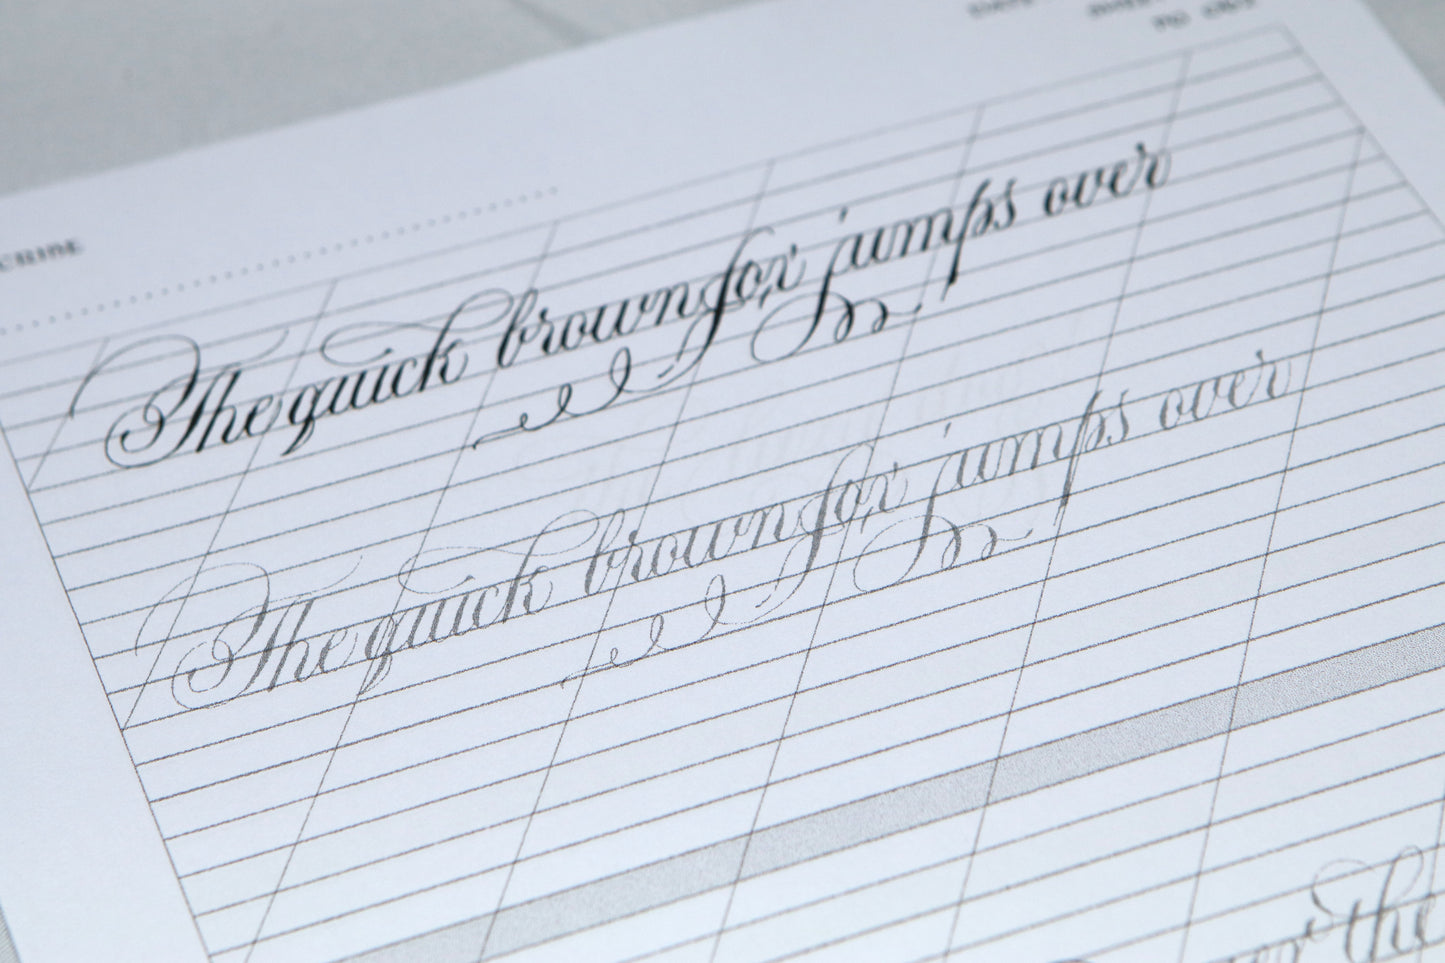 TO
The quick brown fox jumps over
The quick brown fox jumps over
the